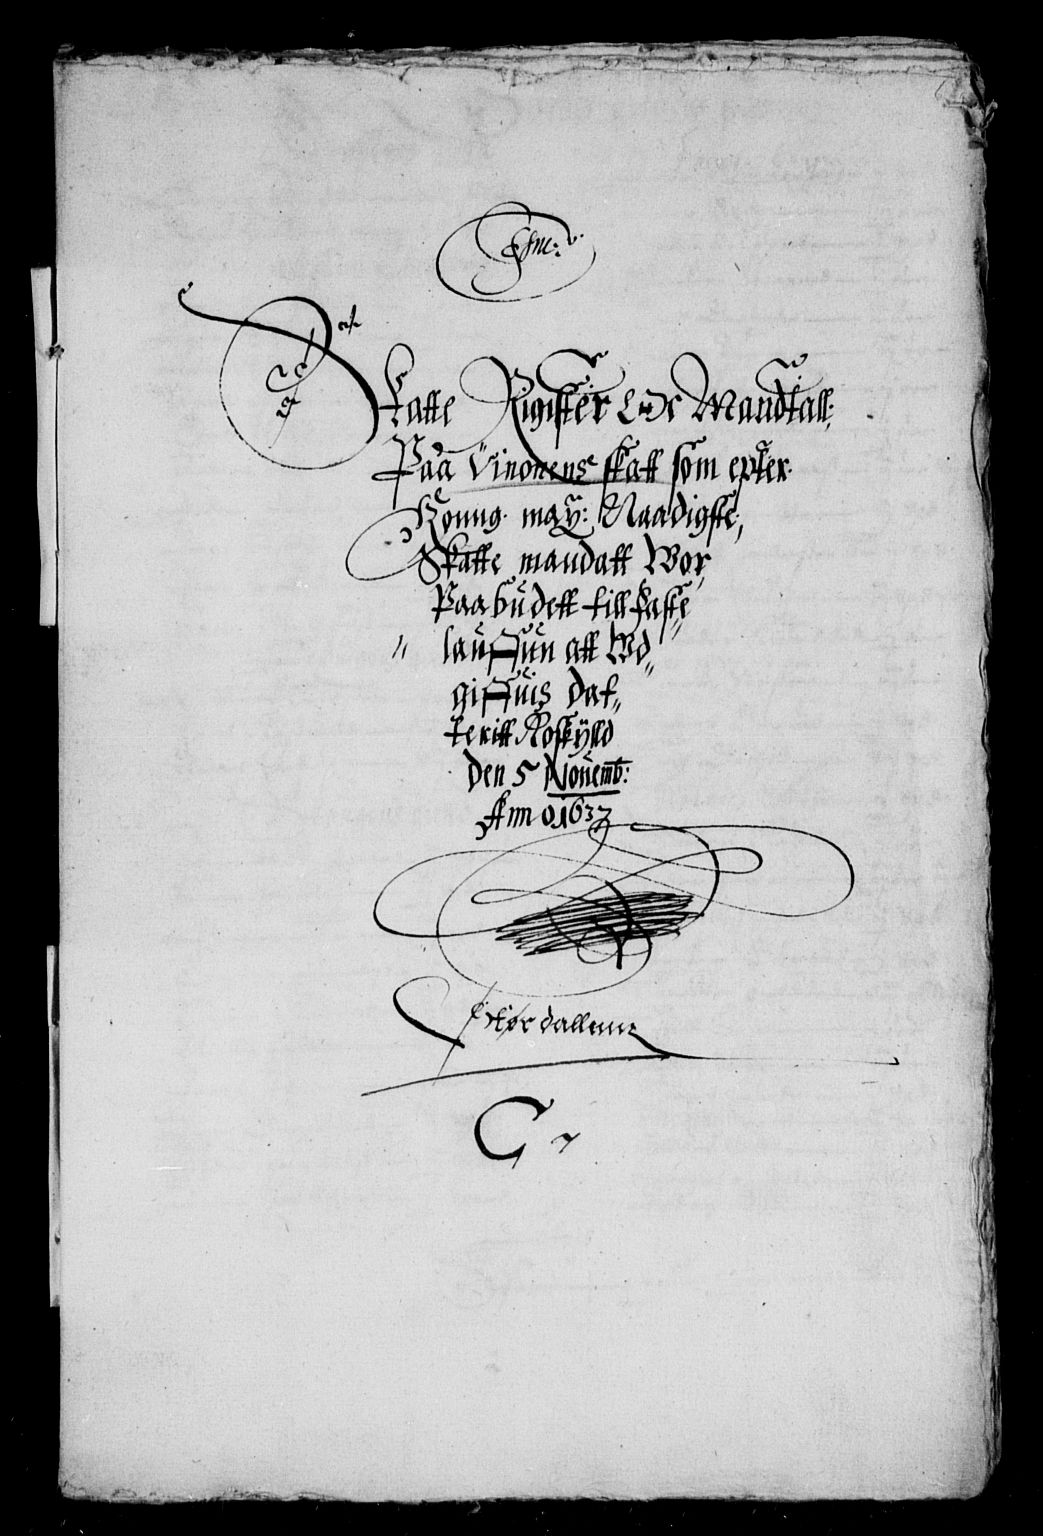 Skatte Rigister Och Mandtall:
Paa Unionens skatt som epter
Konng: may: Naadigste,
Skatte mandatt Wor
Paabudett till faste
lauffuun att Wd„
giffuis dat„
teritt Roskÿld
den 5 Nouemb:
Ann 01632
Størdallenn
C 7